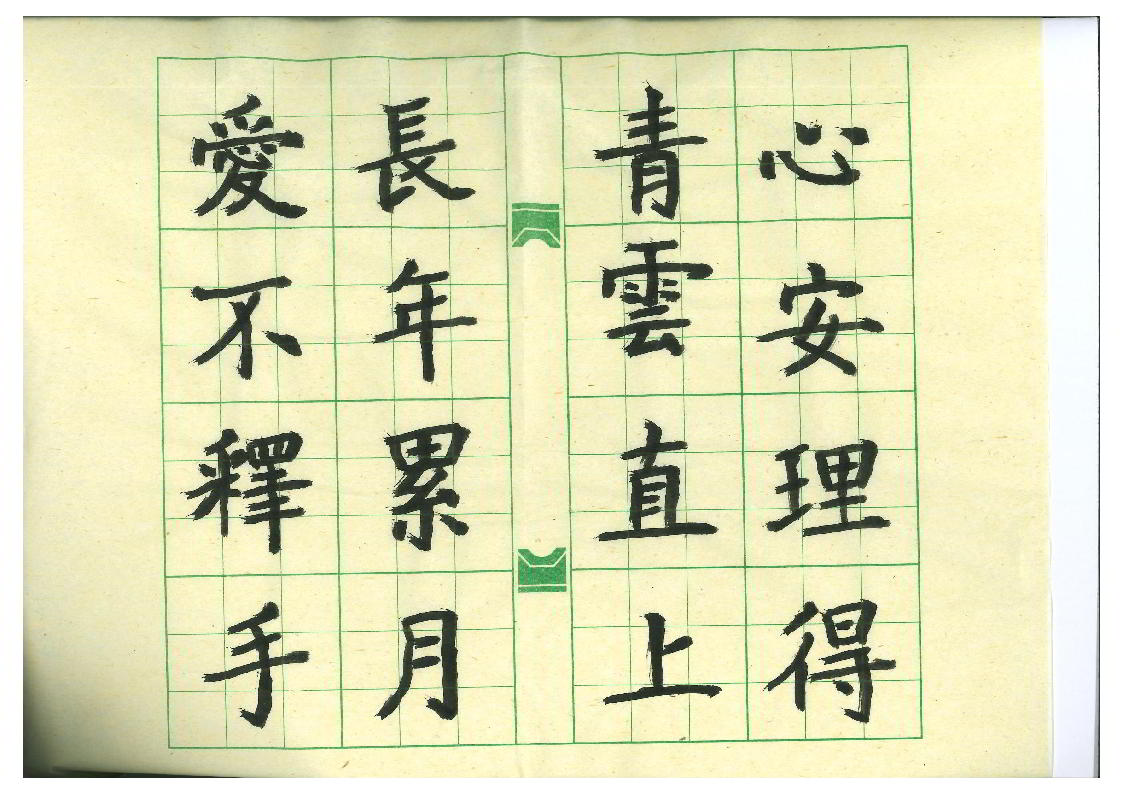 心安理得
青雲直上
長年累月
愛不釋手